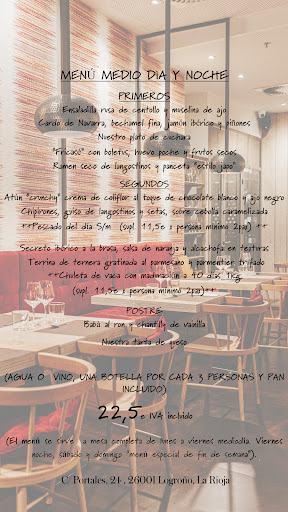 MENÚ MEDIO DIA Y NOCHE
PRIMEROS
Ensaladilla rusa de centollo y muselina de ajo
Cardo de Navarra, bechamel fina, jamón ibérico y piñones
Nuestro plato de cuchara
"Fricasé" con boletus, huevo poche y frutos secos
Ramen seco de langostinos y panceta "estilo japo"
SEGUNDOS
Atún "crunchy" crema de coliflor al toque de chocolate blanco y ajo negro
Chipirones, guiso de langostinos y setas, sobre cebolla caramelizada
**Pescado del día S/m (supl. 11,5e x persona mínimo 2pax) **
Secreto ibérico a la brasa, salsa de naranja y alcachofa en texturas
Terrina de ternera gratinada al parmesano y parmentier trufado
**Chuleta de vaca con maduración a 40 días 1kg.
(supl. 11,5e x persona mínimo 2pax)**
POSTRE:
Babá al ron y chantilly de vainilla
Nuestra tarta de queso
(AGUA O VINO, UNA BOTELLA POR CADA 3 PERSONAS Y PAN
INCLUIDO)
22,5e IVA incluido
(El menú se sirve a mesa completa de lunes a viernes mediodía. Viernes
noche, sábado y domingo "menú especial de fin de semana").
C/ Portales, 24, 26001 Logroño, La Rioja